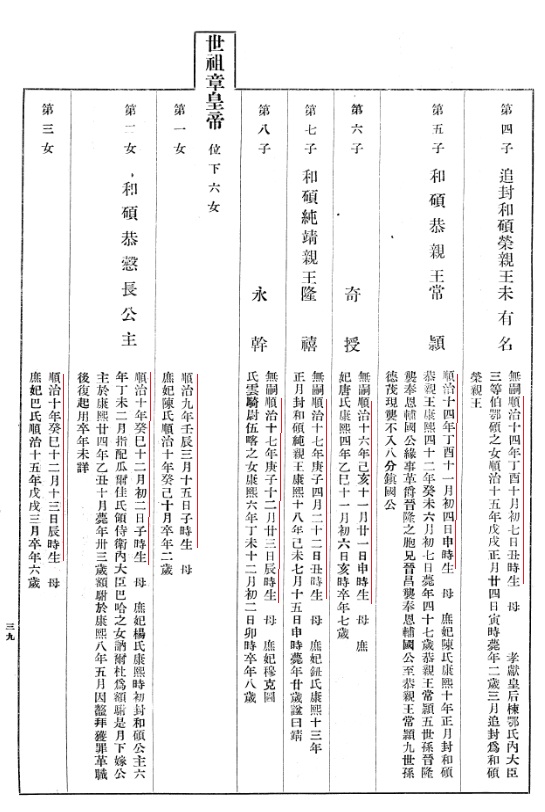 第四子 追封和碩榮親王未有名
無嗣順治十四年丁酉十月初七日丑時生 母 孝獻皇后棟鄂氏內大臣
三等伯鄂碩之女順治十五年戊戌正月廿四日寅時薨年二歲三月追封爲和碩
榮親王
第五子 和碩恭親王常頴
順治十四年丁酉十一月初四日申時生 母 庶妃陳氏康熙十年正月封和碩
恭親王康熙四十二年癸未六月初七日薨年四十七歲恭親王常頴五世孫晉隆
襲奉恩輔國公緣事革爵晉隆之胞兄晉昌襲奉恩輔國公至恭親王常頴九世孫
德茂現襲不入八分鎭國公
第六子 奇授
無嗣順治十六年己亥十一月廿一日申時生 母 庶
妃唐氏康熙四年乙巳十一月初六日亥時卒年七歲
第七子 和碩純靖親王隆禧
無嗣順治十七年庚子四月二十二日丑時生 母 庶妃鈕氏康熙十三年
正月封和碩純親王康熙十八年己未七月十五日申時薨年廿歲諡曰靖
第八子 永幹
無嗣順治十七年庚子十二月廿三日辰時生 母 庶妃穆克圖
氏雲騎尉伍喀之女康熙六年丁未十二月初二日卯時卒年八歲
世祖章皇帝 位下六女
第一女
順治九年壬辰三月十五日子時生 母
庶妃陳氏順治十年癸己十月卒年二歲
第二女 和碩恭慤長公主
順治十年癸巳十二月初二日子時生 母 庶妃楊氏康熙時初封和碩公主六
年丁未二月指配瓜爾佳氏領侍衛內大臣巴哈之女訥爾杜爲額駙是月下嫁公
主於康熙廿四年乙丑十月薨年卅三歲額駙於康熙八年五月因鰲拜獲罪革職
後復起用卒年未詳
第三女
順治十年癸巳十二月十三日辰時生 母
庶妃巴氏順治十五年戊戌三月卒年六歲
三九